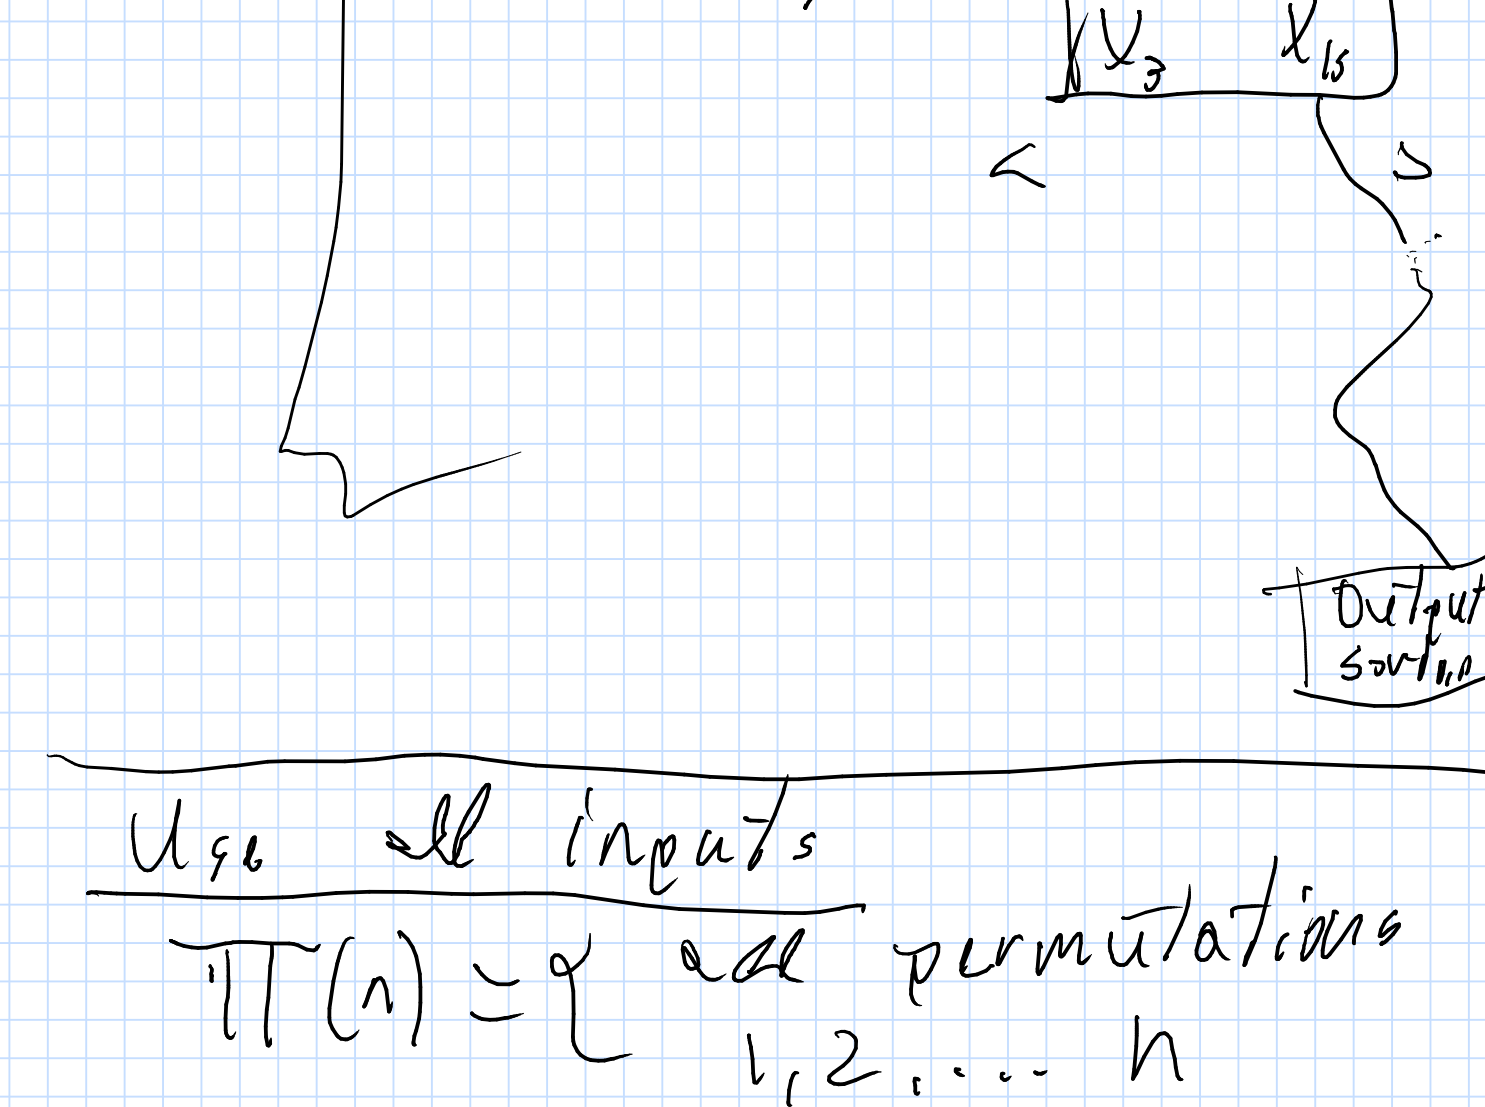 x₃ x₁₅
< >
Output
Use all inputs
Π(n) = { all permutations
1, 2, .... n